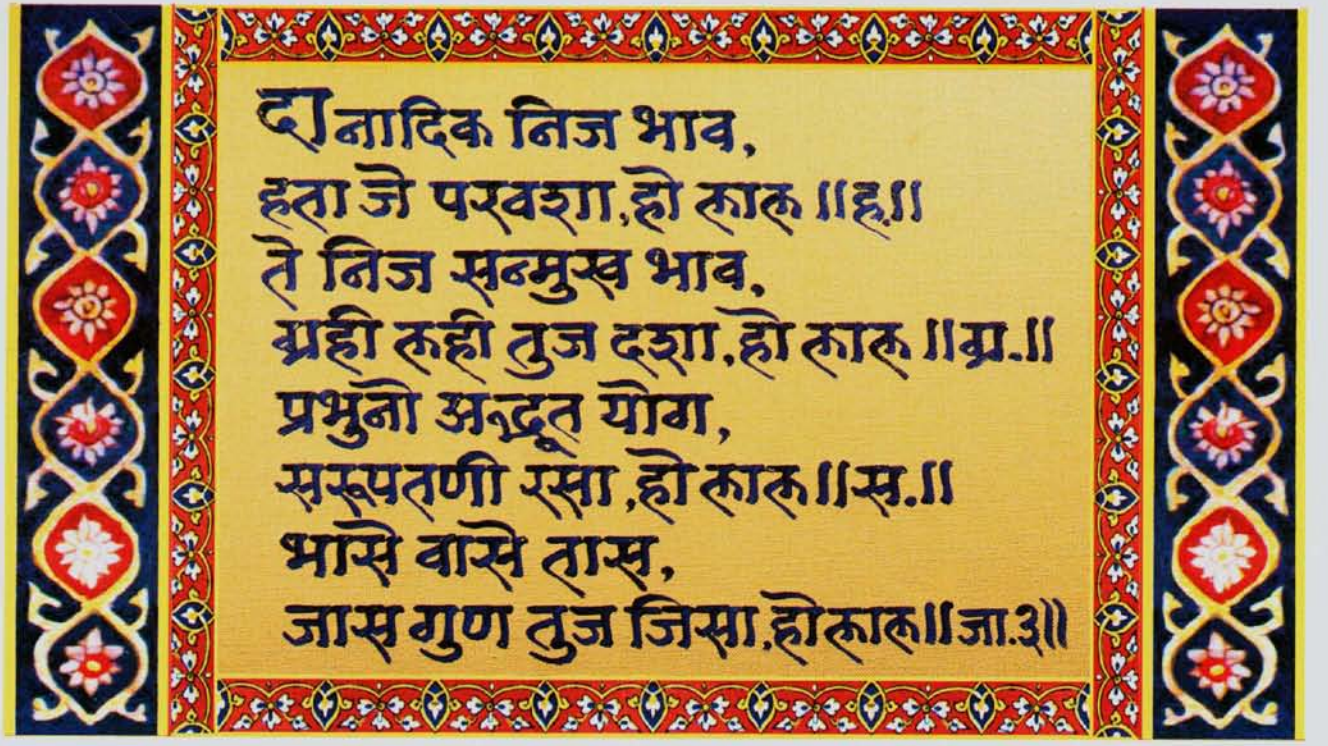 दानादिक निज भाव,
हता जे परवशा, हो लाल ॥ह.॥
ते निज सन्मुख भाव,
ग्रही लही तुज दशा, हो लाल ॥ग्र.॥
प्रभुनो अद्भूत योग,
सरूपतणी रसा, हो लाल ॥स.॥
भासे वासे तास,
जास गुण तुज जिसा, हो लाल ॥जा.३॥